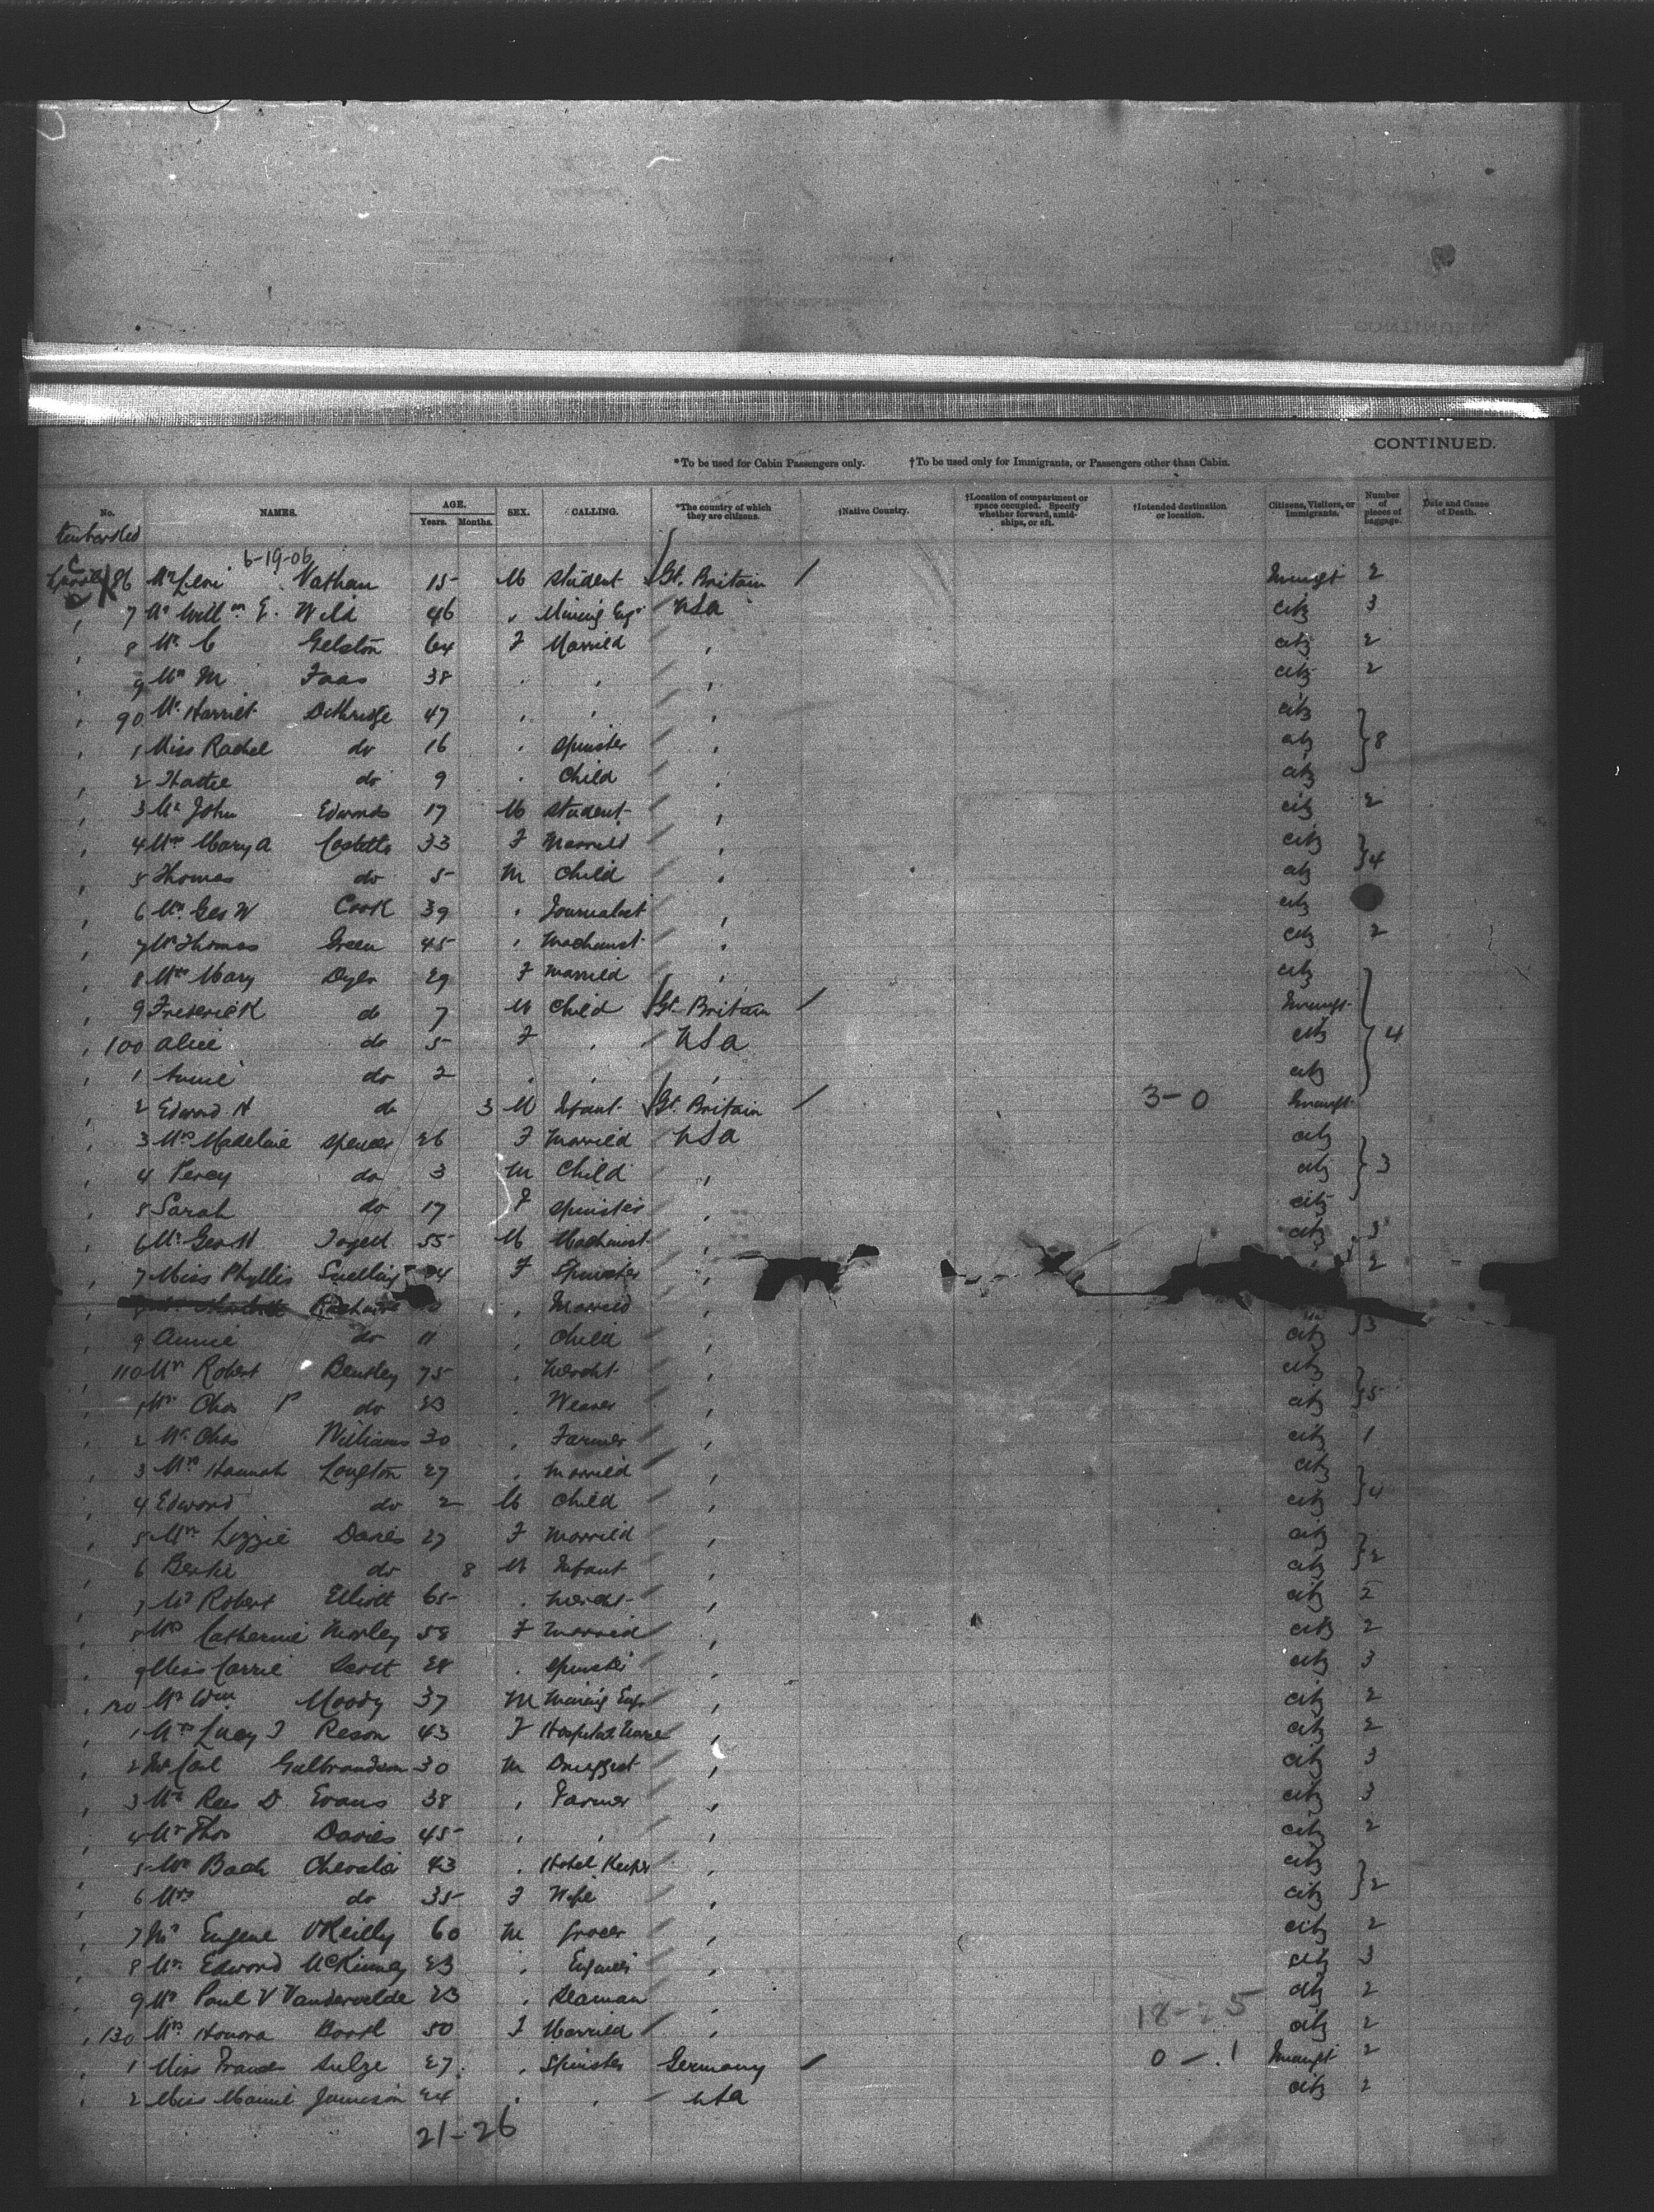 CONTINUED.
*To be used for Cabin Passengers only. †To be used only for Immigrants, or Passengers other than Cabin.
No. NAMES. AGE. Years. Months. SEX. CALLING. *The country of which they are citizens. †Native Country. †Location of compartment or space occupied. Specify whether forward, amidships, or aft. †Intended destination or location. Citizens, Visitors, or Immigrants. Number of pieces of baggage. Date and Cause of Death.
6-19-06
86 Mr Levi Nathan 15 M Student Gt. Britain / Immgt 2
7 Mr Willm E. Wild 46 " Mining Engr USA citz 3
8 Mrs C Gelston 64 F Married " citz 2
9 Mrs M Faas 38 " " " citz 2
90 Mrs Harriet Dethridge 47 " " " citz
1 Miss Rachel do 16 " Spinster " citz } 8
2 Hattie do 9 " Child " citz
3 Mr John Edwards 17 M Student " citz 2
4 Mrs Mary A Costello 33 F Married " citz
5 Thomas do 5 M Child " citz } 4
6 Mr Geo W Cook 39 " Journalist " citz
7 Mr Thomas Green 45 " Machinist " citz 2
8 Mrs Mary Dyer 29 F Married " citz
9 Frederick do 7 M Child Gt. Britain / Immgt
100 Alice do 5 F " USA citz } 4
1 Annie do 2 " " " citz
2 Edward H do 3 M Infant Gt. Britain / 3-0 Immgt
3 Mrs Madeline Spencer 26 F Married USA citz
4 Percy do 3 M Child " citz } 3
5 Sarah do 17 F Spinster " citz
6 Mr Geo H 55 M Machinist " citz 3
7 Miss Phyllis Snelling F Spinster " 2
" Married "
9 Annie do 11 " Child " citz } 3
110 Mr Robert Bentley 75 " Mercht " citz
1 Mr Chas P do 23 " Weaver " citz } 5
2 Mr Chas Williams 30 " Farmer " citz 1
3 Mrs Hannah Longton 27 " Married " citz
4 Edward do 2 M Child " citz } 4
5 Mrs Lizzie Davies 27 F Married " citz
6 Bertie do 8 M Infant " citz } 2
7 Mr Robert Elliott 65 " Mercht " citz 2
8 Mrs Catherine Morley 58 F Married " citz 2
9 Miss Carrie Scott 28 " Spinster " citz 3
120 Mr Wm Moody 37 M Mining Engr " citz 2
1 Mrs Lucy J Reson 43 F Hospital Nurse " citz 2
2 Mr Carl Gulbrandson 30 M Druggist " citz 3
3 Mr Rees D Evans 38 " Farmer " citz 3
4 Mr Thos Davies 45 " " " citz 2
5 Mr Bach Chevalier 43 " Hotel Keeper " citz
6 Mrs do 35 F Wife " citz } 2
7 Mr Eugene O'Reilly 60 M Grocer " citz 2
8 Mr Edward McKinney 23 " Engineer " citz 3
9 Mr Paul V Vandervelde 23 " Seaman " citz 2
18-25
130 Mrs Honora 50 F Married " citz 2
1 Miss Sulze 27 " Spinster Germany / 0-.1 Immgt 2
2 Miss Mamie Jameson 24 " " USA citz 2
21-26